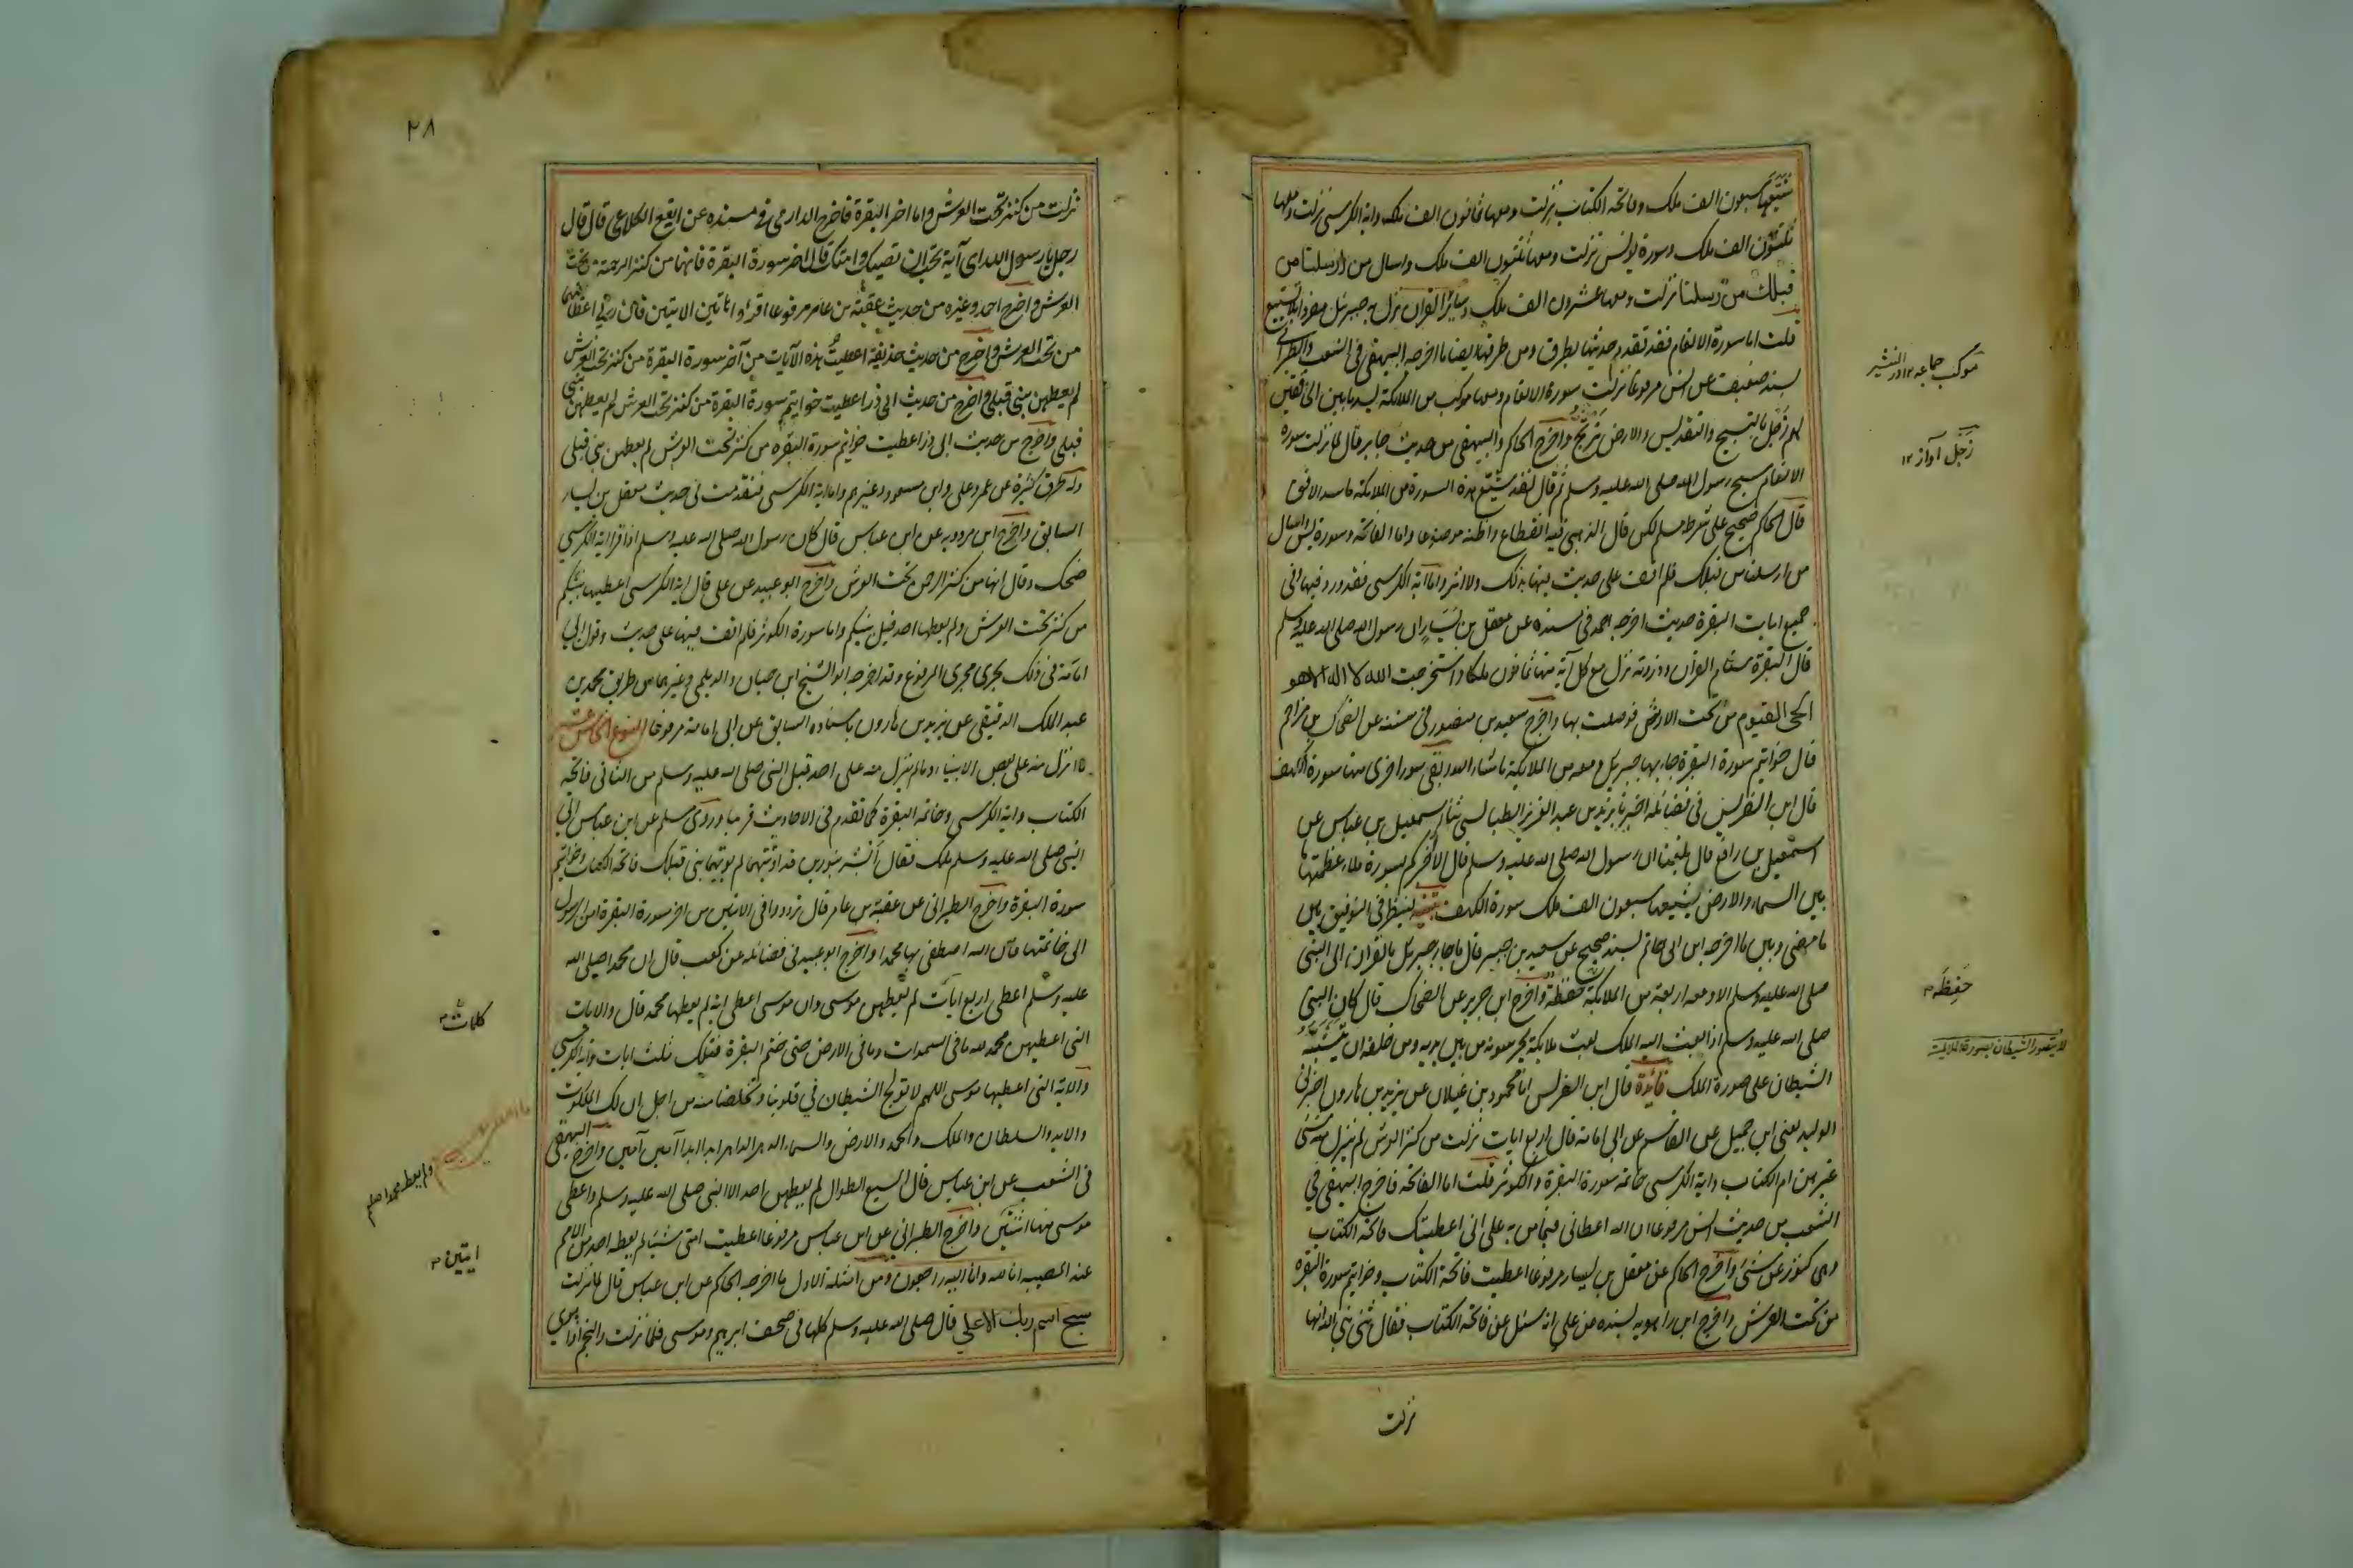 شيعها سبعون الف ملك وفاتحة الكتاب نزلت ومعها ثمانون الف ملك واية الكرسي نزلت ومعها
ثلثون الف ملك وسورة يونس نزلت ومعها ثلثون الف ملك واسال من ارسلنا من
قبلك من رسلنا نزلت ومعها عشرون الف ملك وسائر القران نزل به جبرئيل مفردا بلا تشييع
قلت اما سورة الانعام فقد تقدم حديثها بطرقه ومن طرقه ايضا ما اخرجه البيهقي في الشعب والطبراني
بسند ضعيف عن انس مرفوعا نزلت سورة الانعام ومعها موكب من الملائكة يسد ما بين الخافقين
لهم زجل بالتسبيح والتقديس والارض ترتج واخرج الحاكم والبيهقي من حديث جابر قال لما نزلت سورة
الانعام سبح رسول الله صلى الله عليه وسلم ثم قال لقد شيع هذه السورة من الملائكة ما سد الافق
قال الحاكم صحيح على شرط مسلم لكن قال الذهبي فيه انقطاع واظنه موضوعا واما الفاتحة وسورة يس واسال
من ارسلنا من قبلك فلم اقف على حديث فيها بذلك ولا اثر واما آية الكرسي فقد ورد فيها وفي
جميع ايات البقرة حديث اخرجه احمد في مسنده عن معقل بن يسار ان رسول الله صلى الله عليه وسلم
قال البقرة سنام القران وذروته نزل مع كل آية منها ثمانون ملكا واستخرجت الله لا اله الا هو
الحي القيوم من تحت العرش فوصلت بها واخرج سعيد بن منصور في سننه عن الضحاك بن مزاحم
قال خواتيم سورة البقرة جاء بها جبرئيل ومعه من الملائكة ما شاء الله وبقي سور اخرى منها سورة الكهف
قال ابن الضريس في فضائله اخبرنا يزيد بن عبد العزيز الطيالسي ثنا اسمعيل بن عياش عن
اسمعيل بن رافع قال بلغنا ان رسول الله صلى الله عليه وسلم قال الا اخبركم بسورة ملاء عظمتها
بين السماء والارض شيعها سبعون الف ملك سورة الكهف تنبيه لينظر في التوفيق بين
ما مضى وبين ما اخرجه ابن ابي حاتم بسند صحيح عن سعيد بن جبير قال ما جاء جبرئيل بالقران الى النبي
صلى الله عليه وسلم الا ومعه اربعة من الملائكة حفظة واخرج ابن جرير عن الضحاك قال كان النبي
صلى الله عليه وسلم اذا بعث اليه الملك بعث ملائكة يحرسونه من بين يديه ومن خلفه ان يتشبه
الشيطان على صورة الملك فائدة قال ابن الضريس انا محمود بن غيلان عن يزيد بن هارون اخبرني
الوليد يعني ابن جميل عن القاسم عن ابي امامة قال اربع ايات نزلت من كنز العرش لم ينزل منه شئ
غيرهن ام الكتاب واية الكرسي وخاتمة سورة البقرة والكوثر قلت اما الفاتحة فاخرج البيهقي في
الشعب من حديث انس مرفوعا ان الله اعطاني فيما من به على اني اعطيتك فاتحة الكتاب
وهي كنوز عرشي واخرج الحاكم عن معقل بن يسار مرفوعا اعطيت فاتحة الكتاب وخواتيم سورة البقرة
من تحت العرش واخرج ابن راهويه بسنده عن علي انه سئل عن فاتحة الكتاب فقال ثنى نبي الله انها
نزلت
موكب جماعه ١٢
زجل آواز ١٢
حفظة
لا يتصور الشيطان بصورة الملائكة
٢٨
نزلت من كنز تحت العرش واما اخر البقرة فاخرج الدارمي في مسنده عن ايفع الكلاعي قال قال
رجل يا رسول الله اى آية تحب ان تصيبك وامتك قال اخر سورة البقرة فانها من كنز الرحمة من تحت
العرش واخرج احمد وغيره من حديث عقبة بن عامر مرفوعا اقرؤا هاتين الايتين فان ربي اعطانيهما
من تحت العرش واخرج من حديث حذيفة اعطيت هذه الآيات من آخر سورة البقرة من كنز تحت العرش
لم يعطهن نبي قبلي واخرج من حديث ابي ذر اعطيت خواتيم سورة البقرة من كنز تحت العرش لم يعطهن نبي
قبلي واخرج من حديث ابي ذر اعطيت خواتيم سورة البقرة من كنز تحت العرش لم يعطهن نبي قبلي
وله طرق كثيرة عن عمر وعلي وابن مسعود وغيرهم واما اية الكرسي فتقدمت في حديث معقل بن يسار
السابق واخرج ابن مردويه عن ابن عباس قال كان رسول الله صلى الله عليه وسلم اذا قرا اية الكرسي
ضحك وقال انها من كنز الرحمن تحت العرش واخرج ابو عبيد عن علي قال اية الكرسي اعطيها نبيكم
من كنز تحت العرش ولم يعطها احد قبل نبيكم واما سورة الكوثر فلم اقف فيها على حديث وقول ابي
امامة في ذلك يجري مجرى المرفوع وقد اخرجه ابو الشيخ ابن حبان والديلمي وغيرهما من طريق محمد بن
عبد الملك الدقيقي عن يزيد بن هارون باسناده السابق عن ابي امامة مرفوعا النوع الخامس عشر
ما نزل منه على بعض الانبياء وما لم ينزل منه على احد قبل النبي صلى الله عليه وسلم من الثاني فاتحة
الكتاب واية الكرسي وخاتمة البقرة كما تقدم في الاحاديث قريبا وروى مسلم عن ابن عباس اتى
النبي صلى الله عليه وسلم ملك فقال ابشر بنورين قد اوتيتهما لم يؤتهما نبي قبلك فاتحة الكتاب وخواتيم
سورة البقرة واخرج الطبراني عن عقبة بن عامر قال ترددوا في الايتين من اخر سورة البقرة امن الرسول
الى خاتمتها فان الله اصطفى بها محمدا واخرج ابو عبيد في فضائله عن كعب قال ان محمدا صلى الله
عليه وسلم اعطى اربع ايات لم يعطهن موسى وان موسى اعطى اية لم يعطها محمد قال والايات
التي اعطيهن محمد لله ما في السموات وما في الارض حتى ختم البقرة فتلك ثلث ايات واية الكرسي
والاية التي اعطيها موسى اللهم لا تولج الشيطان في قلوبنا وخلصنا منه من اجل ان لك الملكوت
والايد والسلطان والملك والحمد والارض والسماء الدهر الداهر ابدا ابدا آمين آمين واخرج البيهقي
في الشعب عن ابن عباس قال السبع الطوال لم يعطهن احد الا النبي صلى الله عليه وسلم واعطى
موسى منها اثنتين واخرج الطبراني عن ابن عباس مرفوعا اعطيت امتي شيئا لم يعطه احد من الامم
عند المصيبة انا لله وانا اليه راجعون ومن امثلة الاول ما اخرجه الحاكم عن ابن عباس قال لما نزلت
سبح اسم ربك الاعلى قال صلى الله عليه وسلم كلها في صحف ابرهيم وموسى فلما نزلت والنجم اذا هوى
كلمات
ايتين